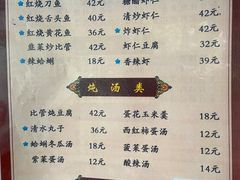 ★红烧刀鱼 42元
★红烧舌头鱼 40元
★红烧黄花鱼 36元
韭菜炒比管 42元
★辣蛤蜊 18元
糖醋虾仁 42元
清炒虾仁 42元
★炒虾仁 42元
虾仁豆腐 32元
★香辣虾 39元
炖汤类
比管炖豆腐 42元
★清水丸子 36元
★蛤蜊冬瓜汤 18元
紫菜蛋汤 12元
蛋花玉米羹 18元
西红柿蛋汤 12元
菠菜蛋汤 12元
酸辣汤 14元